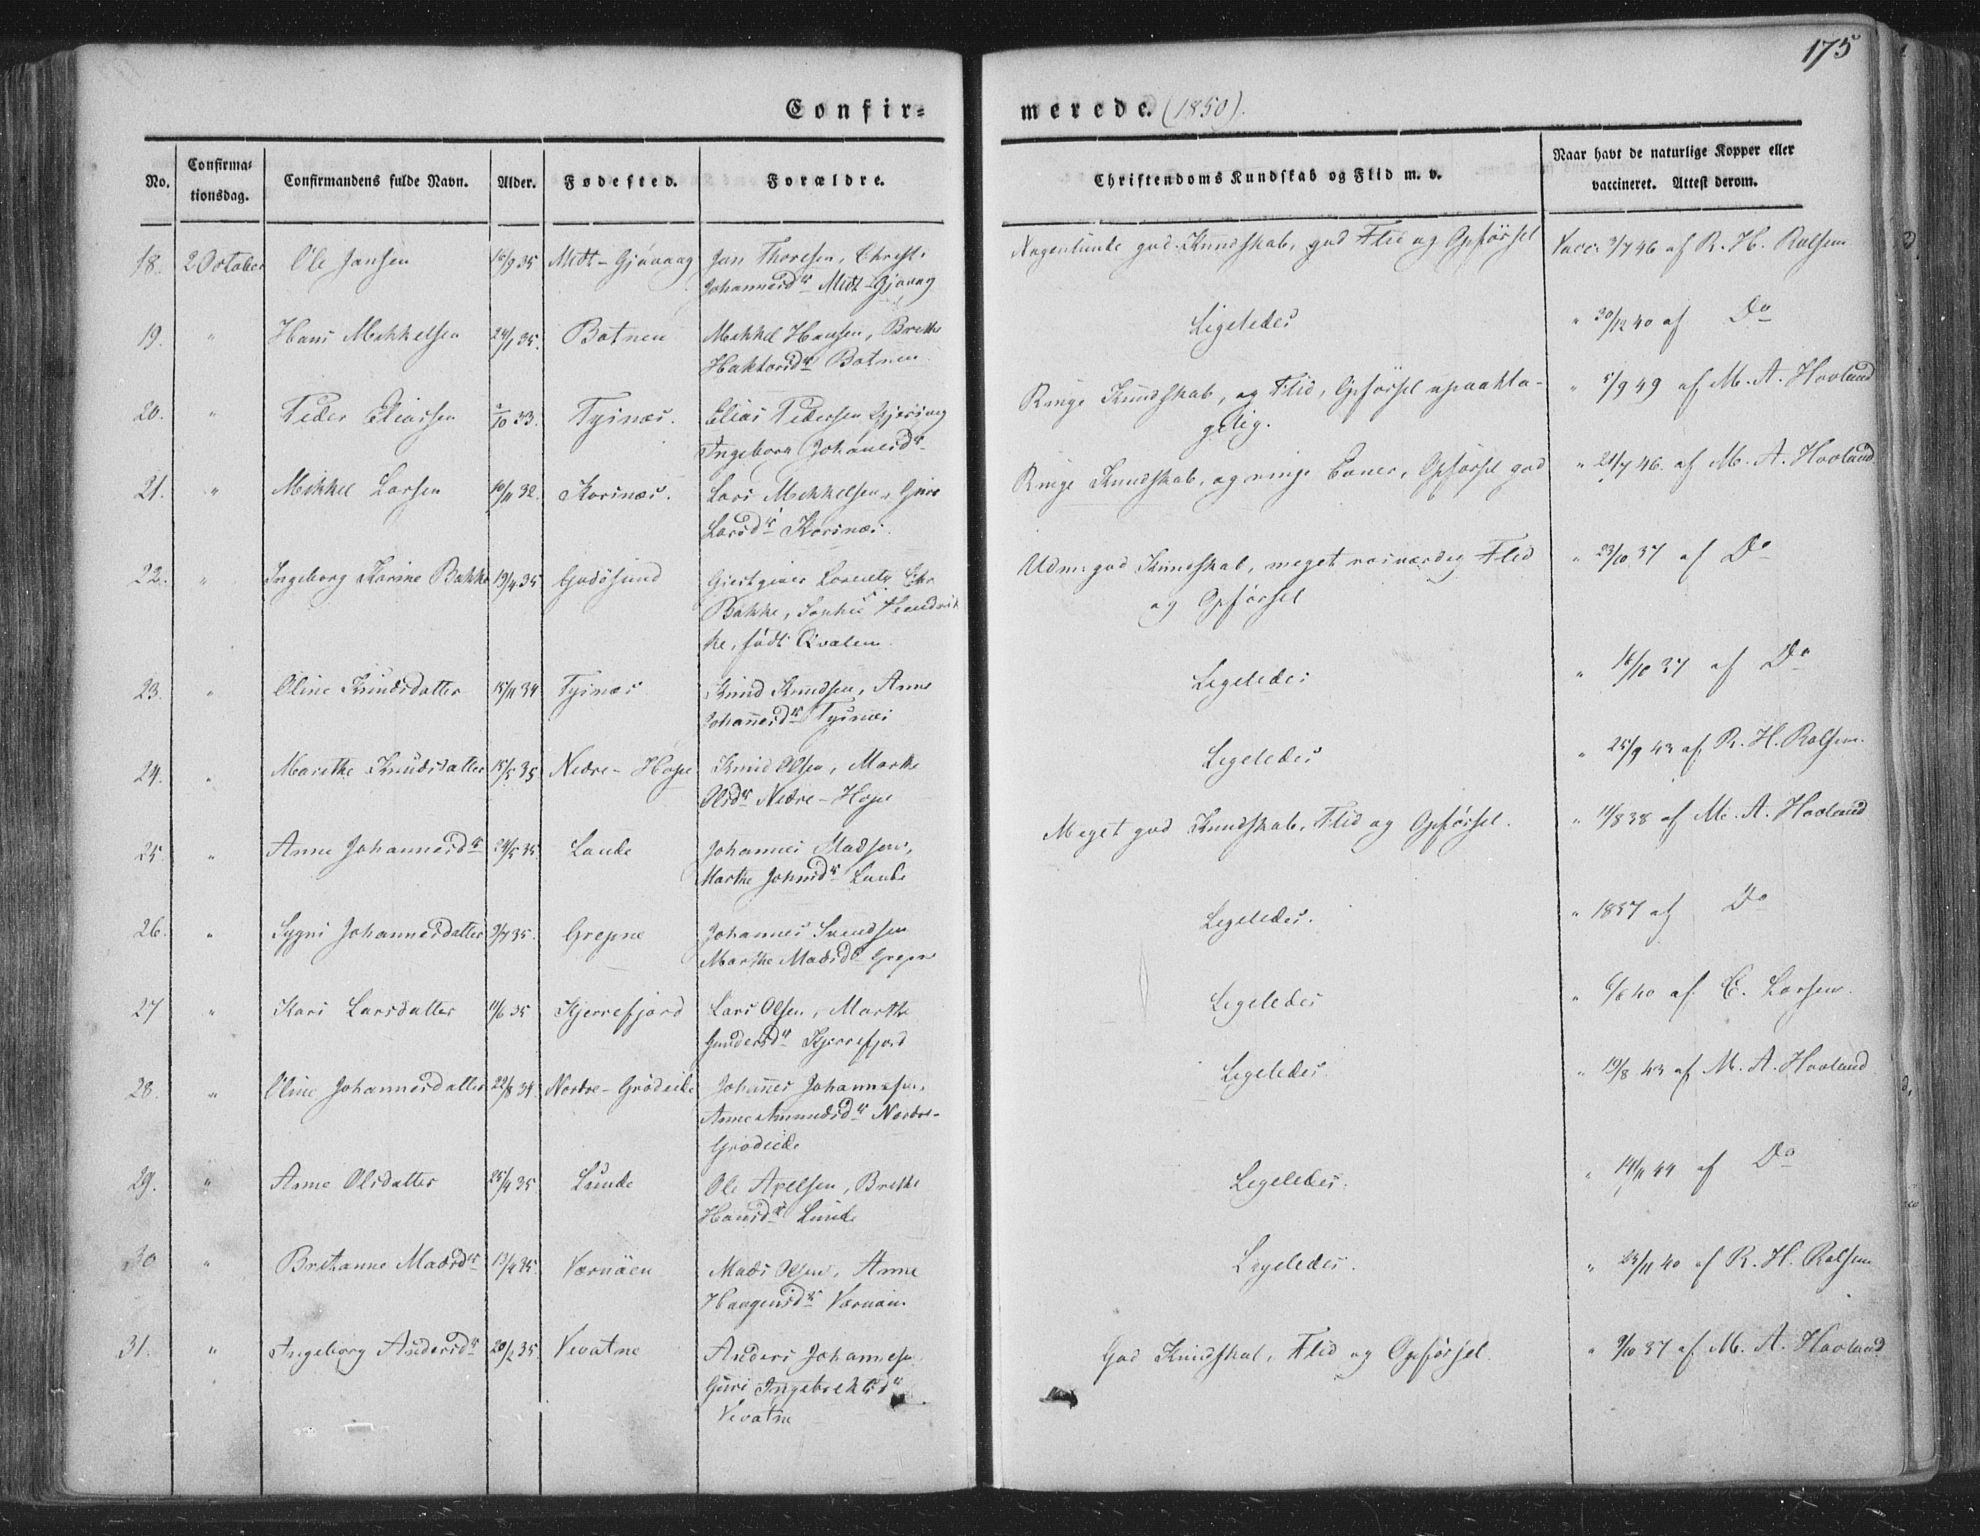 175
Confir= merede. (1850).
No.
Confirma=
tionsdag.
Confirmandens fulde Navn.
Alder.
Fødested.
Forældre.
Christendoms Kundskab og Flid m. v.
Naar havt de naturlige Kopper eller
vaccineret. Attest derom.
18. 2 October Ole Jansen 16/9 35 Midt-Gjøvaag Jan Thoresen, Christi Nogenlunde god Kundskab, god Flid og Opførsel Vacc: 3/7 46 af R. H. Rolsem
Johannesdr Midt-Gjøvaag
19. " Hans Mikkelsen 24/1 35. Botnen Mikkel Hansen, Brithe Ligeledes " 30/12 40 af Do
Haktorsdr Botnen
20. " Peder Eliassen 2/10 33. Tysnæs. Elias Pedersen Ringe Kundskab, og Flid, Opførsel upaakla- " 5/9 49 af M. A. Hovland
Ingeborg Johanesdr gelig.
21. " Mikkel Larsen 10/11 32. Korsnæs. Lars Mikkelsen, Guro Ringe Kundskab, og ringe Evner, Opførsel god " 21/7 46. af M. A. Hovland
Larsdr Korsnæs.
22. " Ingeborg Karine Bakke 19/4 35 Godøsund Giestgiver Lorentz Chr Udm: god Kundskab, meget rosværdig Flid " 23/10 37 af Do
Bakke, Sophie Hendrik og Opførsel
ke, født Qvalen.
23. " Oline Knudsdatter 15/11 34 Tysnæs Knud Knudsen, Anne Ligeledes " 16/10 37 af Do
Johannesdr Tysnæs
24. " Marthe Knudsdatter 15/5 35 Nedre-Hope Knud Olsen, Marthe Ligeledes " 25/9 43 af R. H. Rolsem.
Olsdr Nedre-Hope
25. " Anne Johannesdr 24/5 35 Lunde Johannes Madsen, Meget god Kundskab, Flid og Opførsel. " 11/8 38 af M. A. Hovland
Marthe Johnsdr Lunde
26. " Sygni Johannesdatter 3/7 35. Grepne Johannes Svendsen Ligeledes. " 1837 af Do
Marthe Madsdr Grepne
27 " Kari Larsdatter 11/6 35 Kjerrefjord Lars Olsen, Marthe Ligeledes " 6/8 40 af C. Larsen.
Gundersdr Kjerrefjord
28. " Oline Johannesdatter 22/8 34. Nordre-Grødeide Johannes Johannesen, Ligeledes " 19/8 43 af M. A. Hovland
Anne Amundsdr Nordre-
Grødeide
29. " Anne Olsdatter 25/4 35 Lunde Ole Apelsen, Brithe Ligeledes. " 14/11 44 af Do
Hansdr Lunde
30 " Brithanne Madsdr 13/4 35. Værnøen Mads Olsen, Anne Ligeledes. " 24/11 40 af R. H. Rolsem
Haagensdr Værnøen
31. " Ingeborg Andersdr 20/2 35 Vevatne Anders Johannesen God Kundskab, Flid og Opførsel. " 9/10 37 af M. A. Hovland
Guri Ingebrektsdr
Vevatne